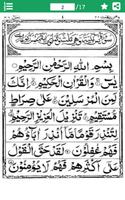 2 /17
بِسْمِ اللهِ الرَّحْمٰنِ الرَّحِيْمِ
يٰسٓ ۚ وَالْقُرْاٰنِ الْحَكِيْمِ ۙ اِنَّكَ
لَمِنَ الْمُرْسَلِيْنَ ۙ عَلٰى صِرَاطٍ
مُّسْتَقِيْمٍ ؕ تَنْزِيْلَ الْعَزِيْزِ الرَّحِيْمِ ۙ
لِتُنْذِرَ قَوْمًا مَّاۤ اُنْذِرَ اٰبَآؤُهُمْ
فَهُمْ غٰفِلُوْنَ لَقَدْ حَقَّ الْقَوْلُ
عَلٰٓى اَكْثَرِهِمْ فَهُمْ لَا يُؤْمِنُوْنَ